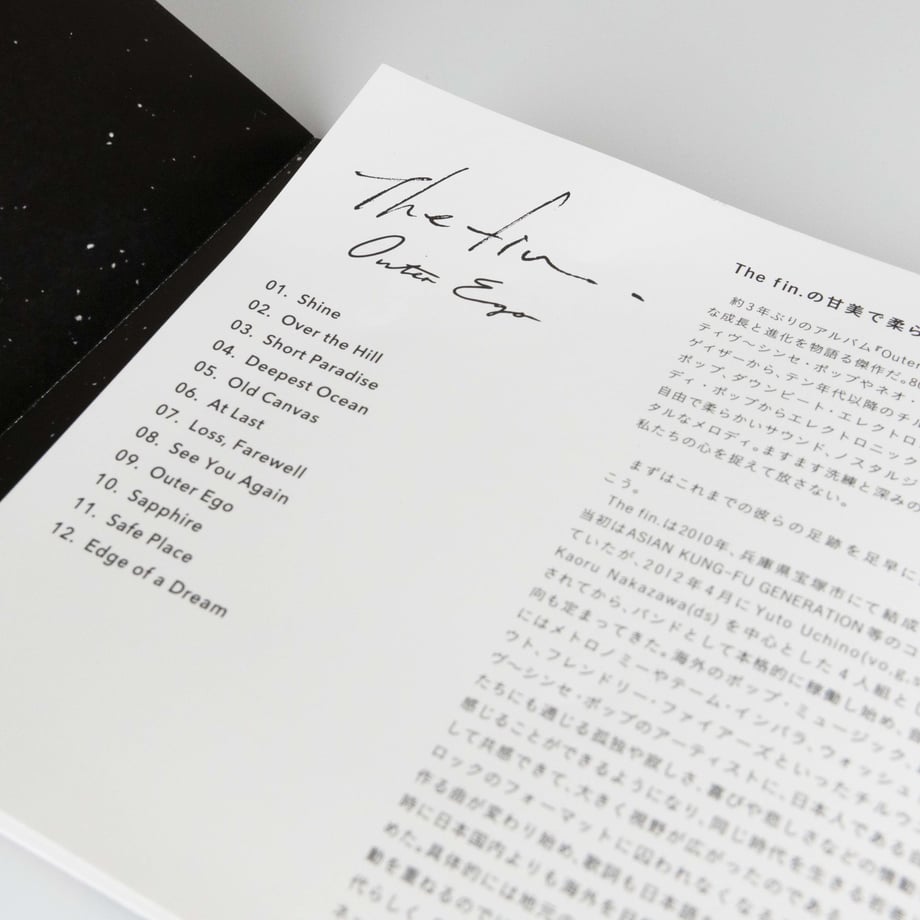 The fin.
Outer Ego
01. Shine
02. Over the Hill
03. Short Paradise
04. Deepest Ocean
05. Old Canvas
06. At Last
07. Loss, Farewell
08. See You Again
09. Outer Ego
10. Sapphire
11. Safe Place
12. Edge of a Dream
The fin.の甘美で柔ら
約3年ぶりのアルバム『Outer
な成長と進化を物語る傑作だ。80
ティヴ〜シンセ・ポップやネオ・
ゲイザーから、テン年代以降のチル
ポップ、ダウンビート・エレクトロ
ディ・ポップからエレクトロニック
自由で柔らかいサウンド、ノスタルジ
タルなメロディ。ますます洗練と深みの
私たちの心を捉えて放さない。
まずはこれまでの彼らの足跡を足早に
こう。
The fin.は2010年、兵庫県宝塚市にて結成
当初はASIAN KUNG-FU GENERATION等のコ
ていたが、2012年4月にYuto Uchino(vo,g,s
Kaoru Nakazawa(ds)を中心とした4人組と
されてから、バンドとして本格的に稼働し始め、
向も定まってきた。海外のポップ・ミュージック、
にはメトロノミーやテーム・インパラ、ウォッシュ
ウト、フレンドリー・ファイアーズといったチルウ
ヴ〜シンセ・ポップのアーティストに、日本人である
たちにも通じる孤独や寂しさ、喜びや悲しさなどの情動
感じることができるようになり、同じ時代を生きる若者
して共感できて、大きく視野が広がったのであ
ロックのフォーマットに囚われなくな
作る曲が変わり始め、歌詞も日本語
時に日本国内よりも海外を
めた。具体的には地元の
動を重ねるので
代らしく、